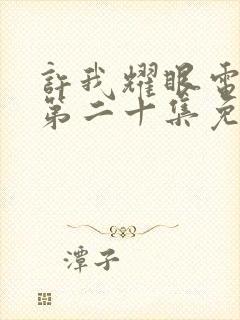 許我耀眼電
第二十集免
潭子